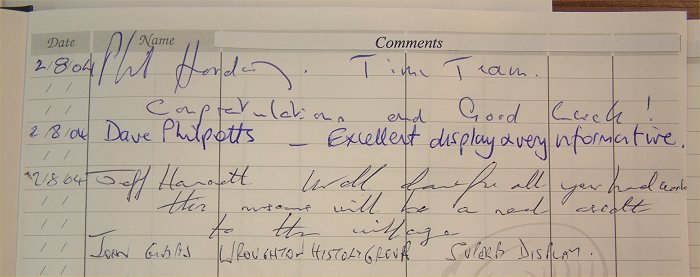 Date Name Comments
2/8/04 Phil Harding. Time Team.
Congratulations and Good Luck!
2/8/04 Dave Philpotts – Excellent display & very informative.
2/8/04 Jeff Well done for all your hard work
this museum will be a real credit
to the village
JOHN WROUGHTON HISTORY GROUP SUPERB DISPLAY.